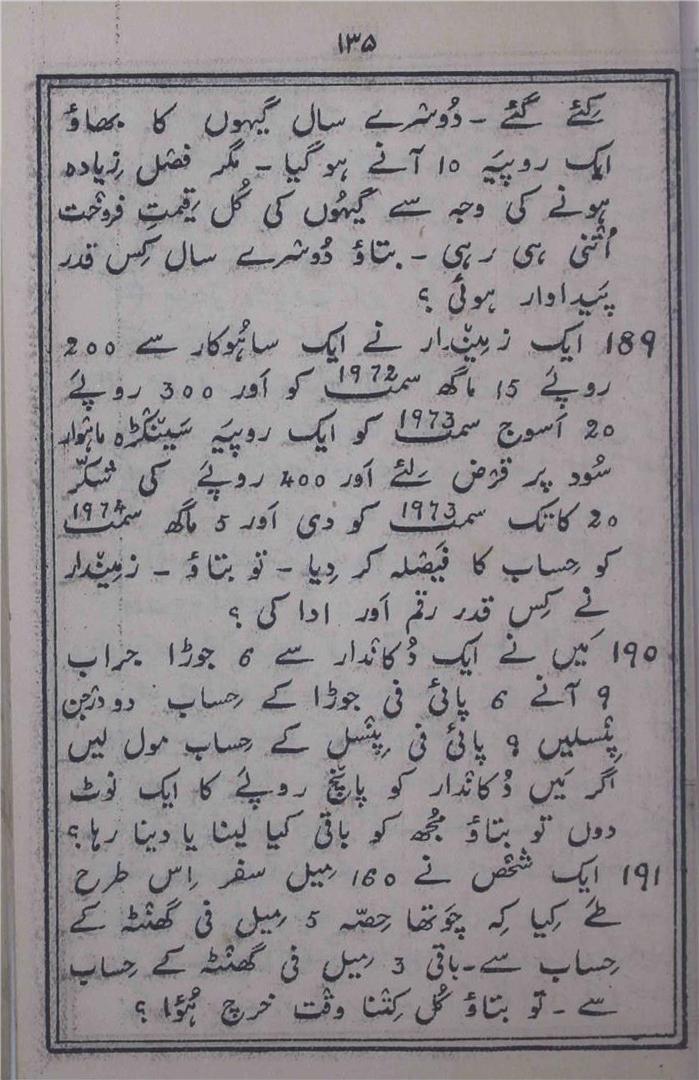 ۱۳۵
کِئے گئے ۔ دُوسْرے سال گیہوں کا بھاؤ
ایک روپیَہ 10 آنے ہو گیا ۔ مگر فصْل زِیادہ
ہونے کی وجہ سے گیہُوں کی کُل قِیمتِ فروخْت
اُتْنی ہی رہی ۔ بتاؤ دُوسْرے سال کِس قدر
پَیداوار ہوئی ؟
189 ایک زمِینْدار نے ایک ساہُوکار سے 200
روپئے 15 ماگھ سمت 1972 کو اَور 300 روپئے
20 اَسوج سمت 1973 کو ایک روپیَہ سَینْکڑہ ماہْوار
سُود پر قرْض لِئے اَور 400 روپئے کی شکّر
20 کاتک سمت 1973 کو دی اَور 5 ماگھ سمت 1974
کو حِساب کا فَیصْلہ کر دِیا ۔ تو بتاؤ ۔ زمِینْدار
نے کِس قدر رقم اَور ادا کی ؟
190 مَیں نے ایک دُکانْدار سے 6 جوڑا جراب
9 آنے 6 پائی فی جوڑا کے حِساب دو درْجن
پِنْسلیں 9 پائی فی پِنْسل کے حِساب مول لیں
اگر مَیں دُکانْدار کو پانْچ روپئے کا ایک نوٹ
دوں تو بتاؤ مُجھ کو باقی کیا لینا یا دینا رہا ؟
191 ایک شخْص نے 160 مِیل سفر اِس طرح
طے کِیا کہ چَوتھا حِصّہ 5 مِیل فی گھنْٹہ کے
حِساب سے ۔ باقی 3 مِیل فی گھنْٹہ کے حِساب
سے ۔ تو بتاؤ کُل کِتْنا وقْت خرچ ہُؤا ؟